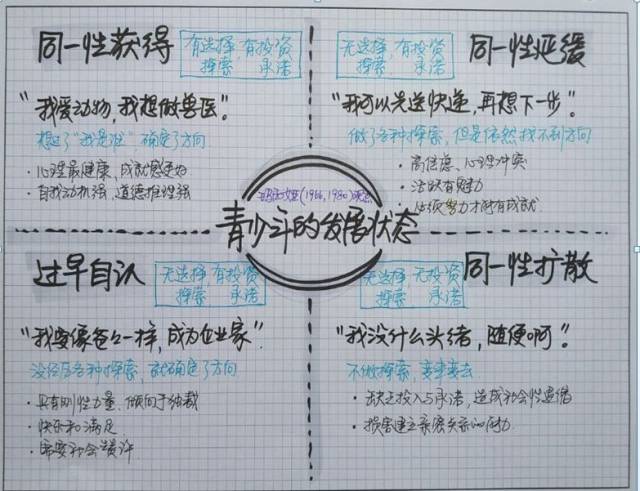 同一性获得
有选择 有投资
探索 承诺
"我爱动物,我想做兽医"。
想过了"我是谁" 确定了方向
· 心理最健康,成就感更好
· 自我动机强,道德推理强
同一性延缓
无选择 有投资
探索 承诺
"我可以先送快递,再想下一步"。
做了各种探索,但是依然找不到方向
· 高焦虑、心理冲突
· 活跃有魅力
· 必须努力才能有成就
(1966, 1980)
青少年的发展状态
过早自认
无选择 有投资
探索 承诺
"我要像爸爸一样,成为企业家"
没经历各种探索,就确定了方向
· 具有刚性力量、倾向于独裁
· 快乐和满足
· 需要社会赞许
同一性扩散
无选择 无投资
探索 承诺
"我没什么头绪,随便啊"。
不做探索,变来变去
· 缺乏投入与承诺,造成社会性退缩
· 损害建立亲密关系的能力